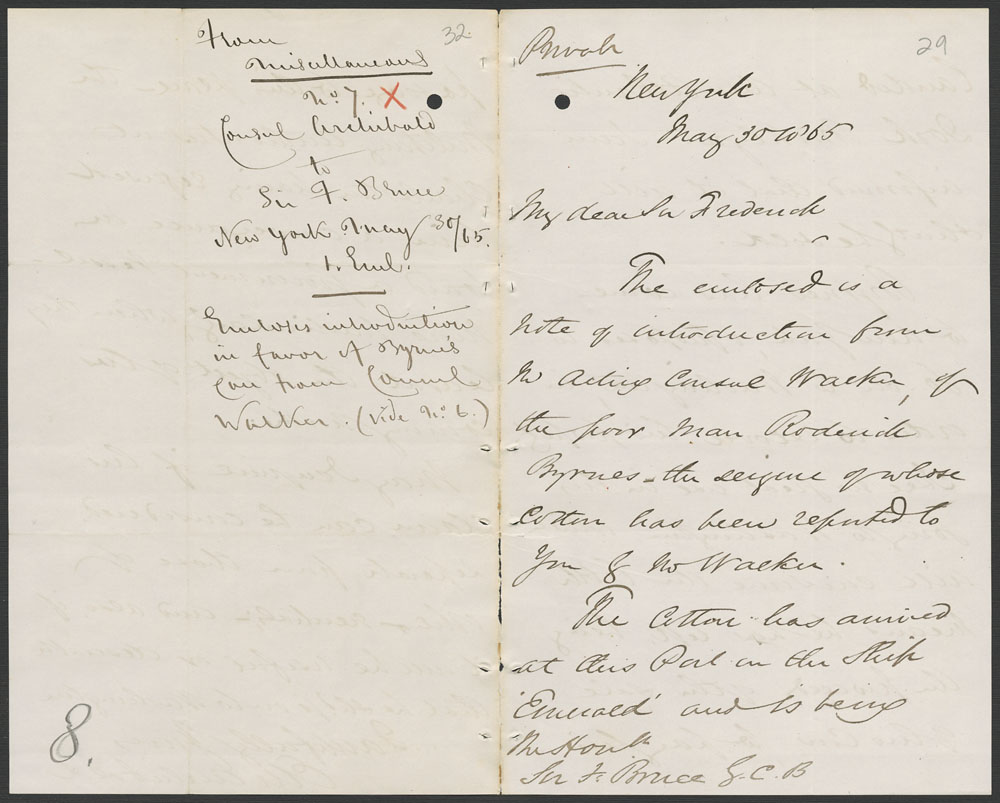 From
Miscellaneous
32.
No. 7. X
Consul Archibald
to
Sir F. Bruce
New York May 30/65.
1. Encl.
Encloses introduction
in favor of Byrne's
from Consul
Walker. (Vide No. 6.)
8.
Private
29
New York
May 30 1865
My dear Sir Frederick
The enclosed is a
note of introduction from
Mr Acting Consul Walker, of
the poor man Roderick
Byrnes - the seizure of whose
Cotton has been reported to
you by Mr Walker.
The Cotton has arrived
at this Port in the Ship
'Emerald' and is being
The Honble
Sir F. Bruce G.C.B